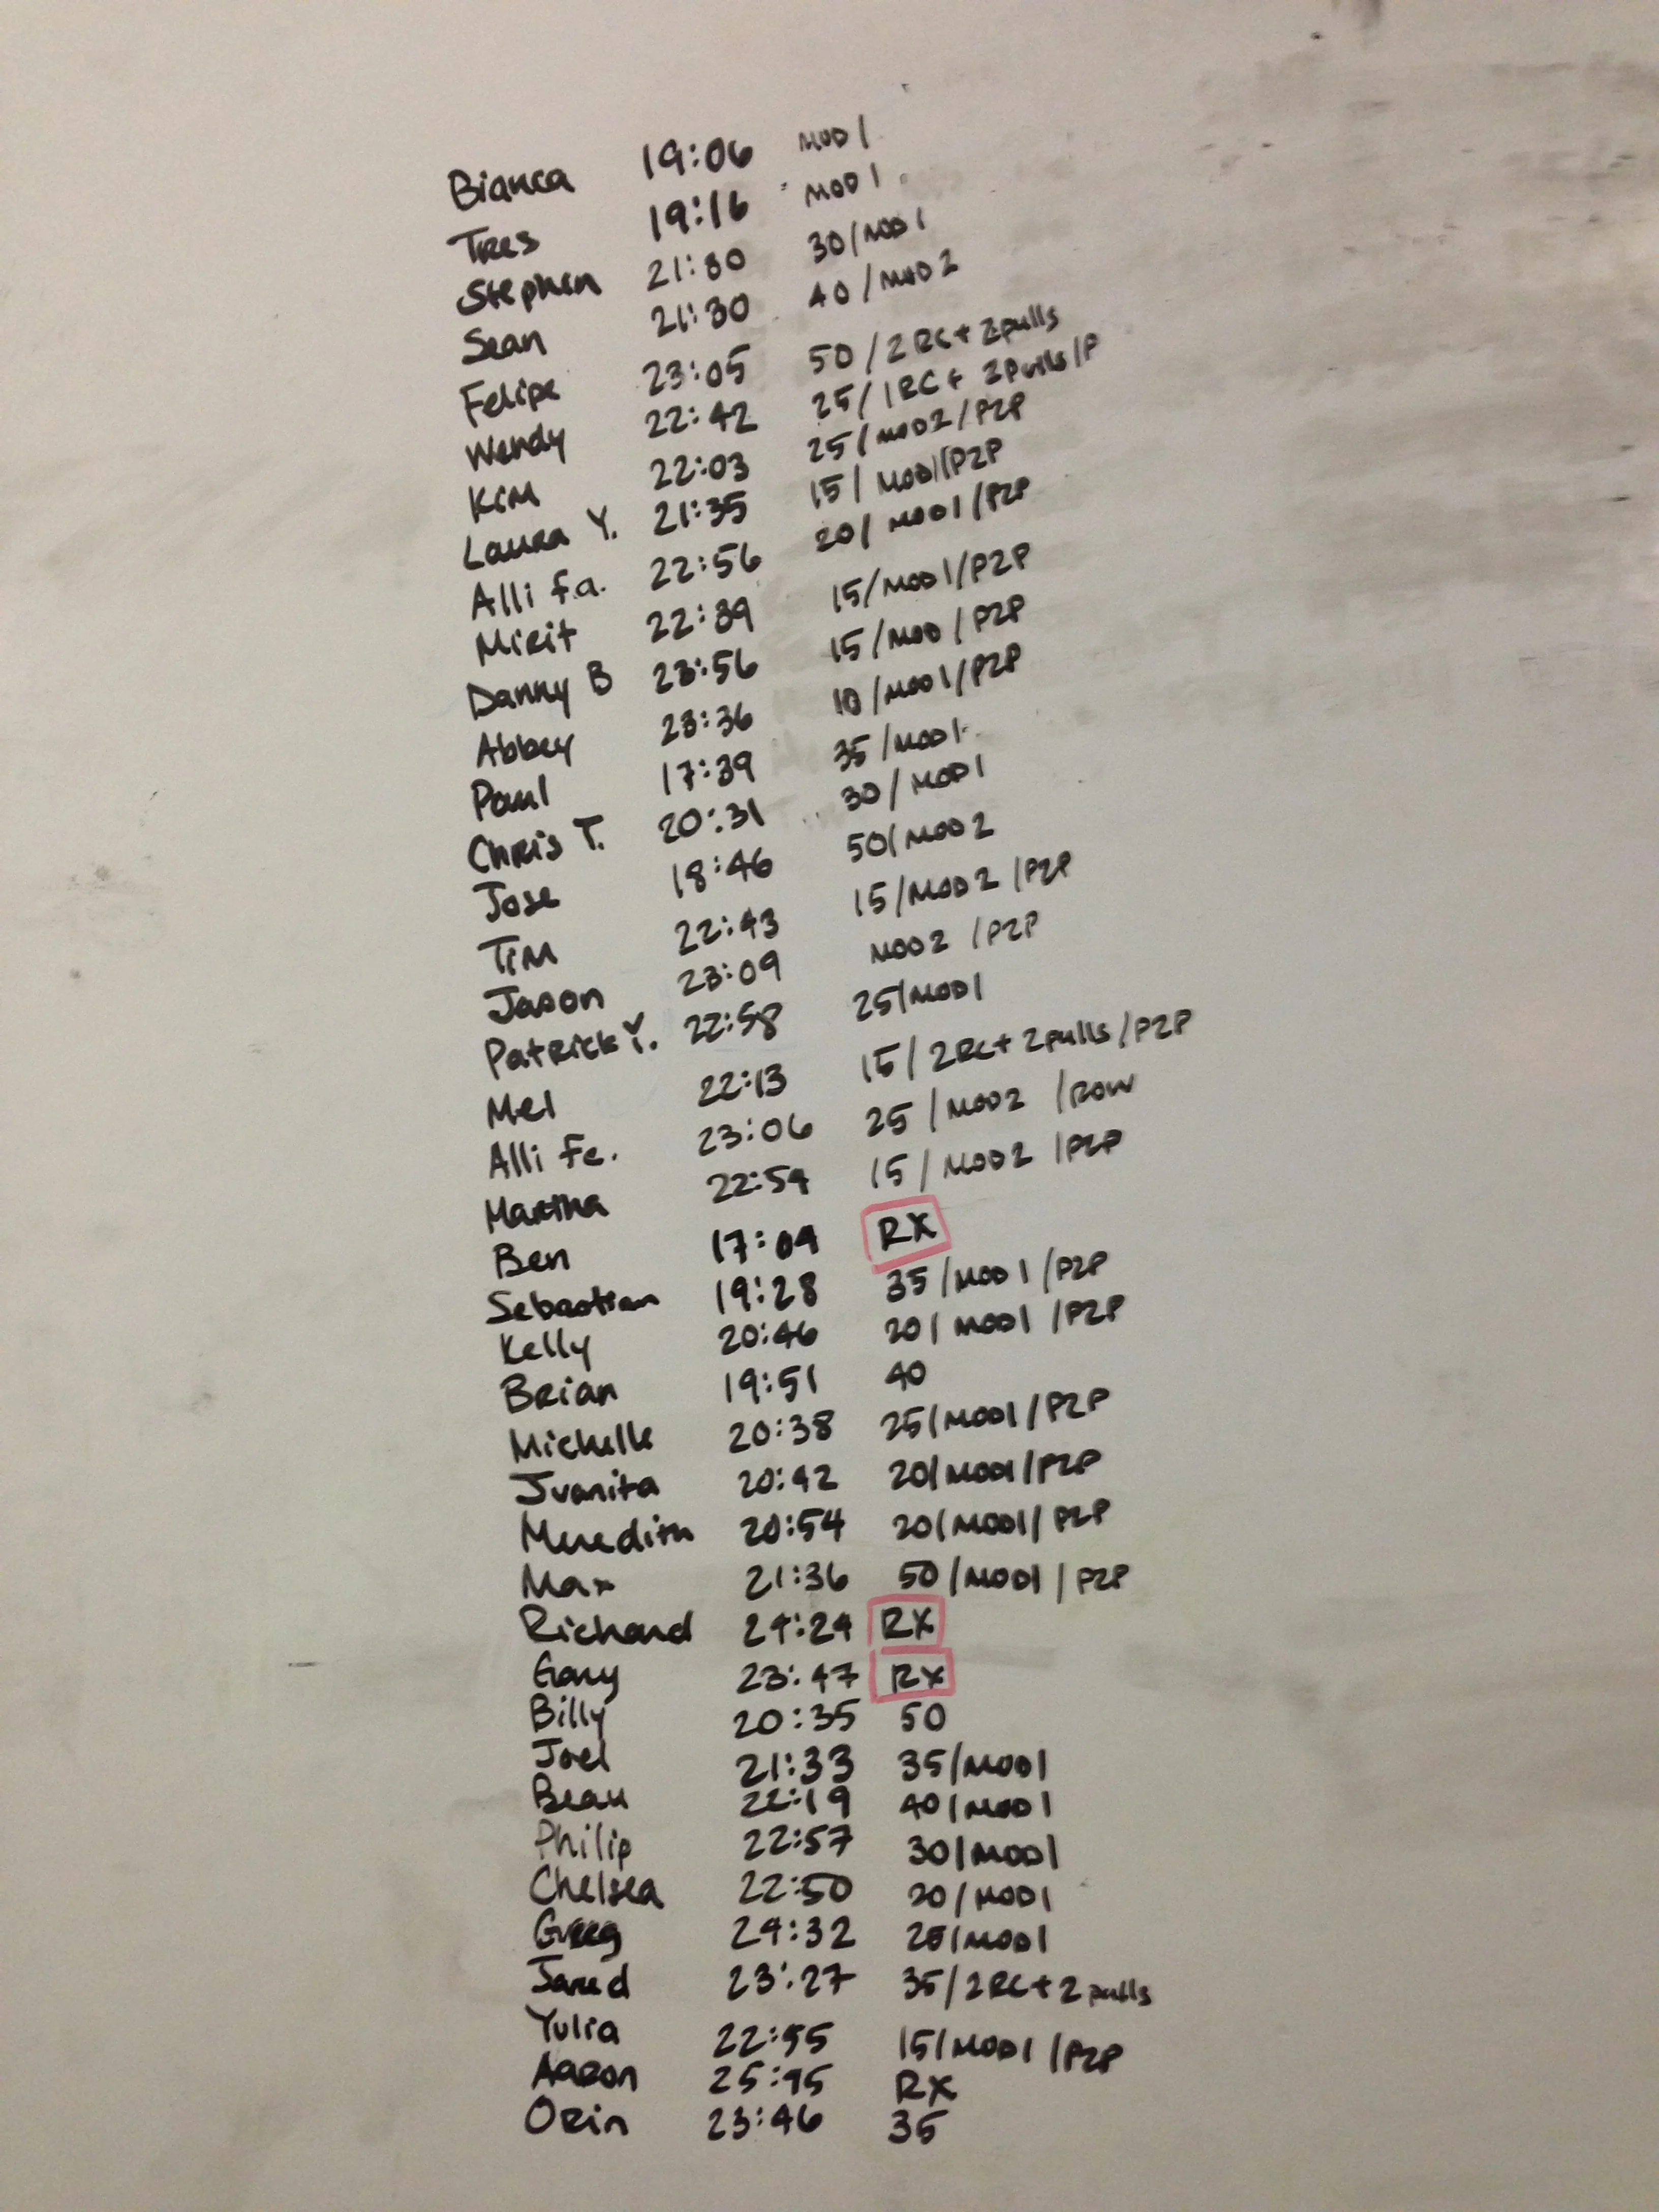 Bianca 19:06 MOD 1
Tres 19:16 MOD 1
Stephen 21:30 30/MOD 1
Sean 21:30 40/MOD 2
Felipe 23:05 50/2RC+2pulls
Wendy 22:42 25/1RC+2Pulls/P
Kim 22:03 25/MOD2/P2P
Laura Y. 21:35 15/MOD1/P2P
Alli f.a. 22:56 20/MOD1/P2P
Mirit 22:39 15/MOD1/P2P
Danny B 23:56 15/MOD/P2P
Abbey 23:36 10/MOD1/P2P
Paul 17:39 35/MOD1
Chris T. 20:31 30/MOD1
Jose 18:46 50/MOD2
Tim 22:43 15/MOD2/P2P
Jason 23:09 MOD2/P2P
Patrick Y. 22:58 25/MOD1
Mel 22:13 15/2RC+2pulls/P2P
Alli Fe. 23:06 25/MOD2/ROW
Martha 22:54 15/MOD2/P2P
Ben 17:09 RX
Sebastian 19:28 35/MOD1/P2P
Kelly 20:46 20/MOD1/P2P
Brian 19:51 40
Michelle 20:38 25/MOD1/P2P
Juanita 20:42 20/MOD1/P2P
Meredith 20:54 20/MOD1/P2P
Max 21:36 50/MOD1/P2P
Richard 24:24 RX
Gary 23:47 RX
Billy 20:35 50
Joel 21:33 35/MOD1
Beau 22:19 40/MOD1
Philip 22:57 30/MOD1
Chelsea 22:50 20/MOD1
Greg 24:32 25/MOD1
Jared 23:27 35/2RC+2pulls
Yulia 22:55 15/MOD1/P2P
Aaron 25:45 RX
Orin 23:46 35